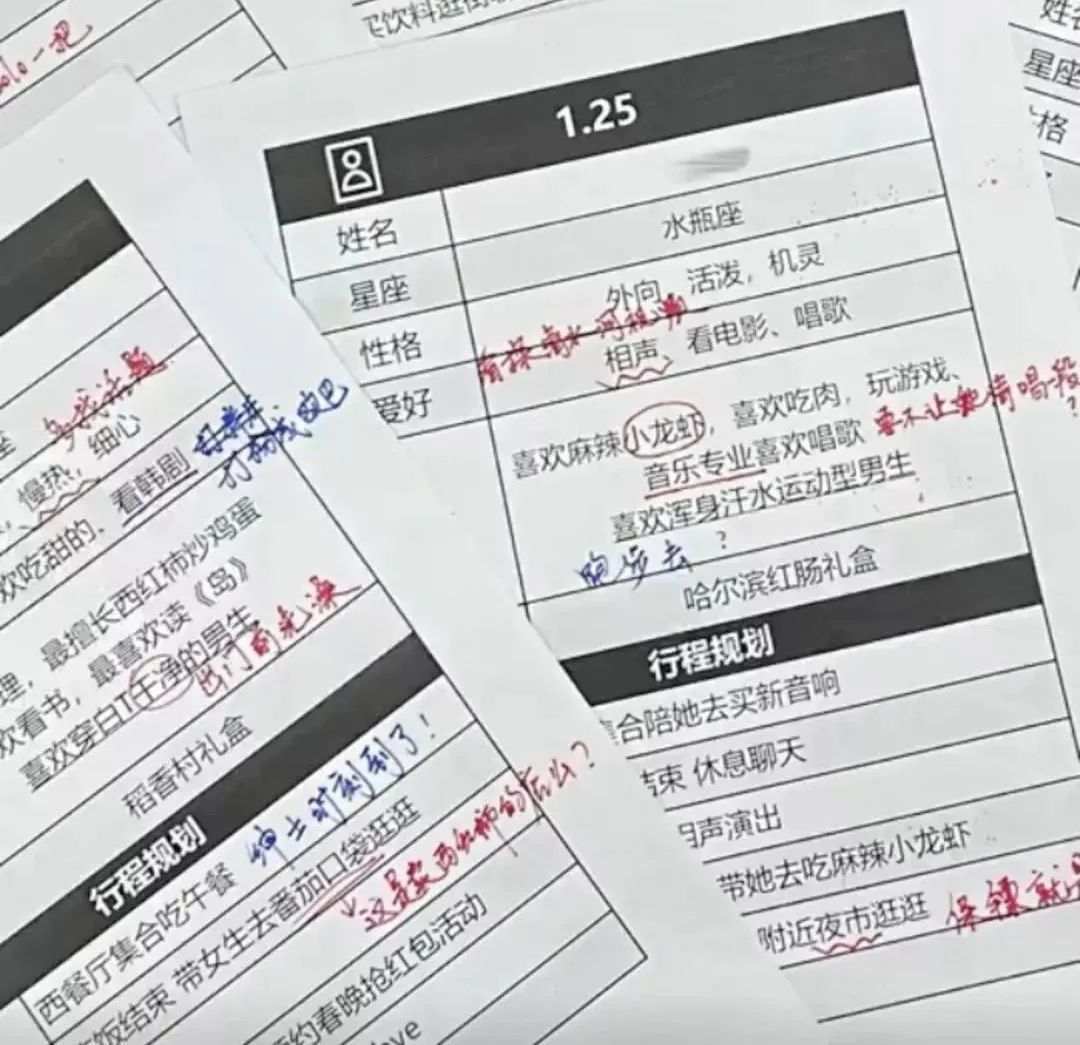 买饮料逛街
solo一把
姓名
星座
格
1.25
姓名
星座 水瓶座
性格 外向、活泼,机灵
爱好 相声、看电影、唱歌
喜欢麻辣小龙虾,喜欢吃肉,玩游戏、
音乐专业喜欢唱歌 要不让她倚唱一段?
喜欢浑身汗水运动型男生
跑步去?
哈尔滨红肠礼盒
行程规划
集合陪她去买新音响
结束 休息聊天
相声演出
带她去吃麻辣小龙虾
附近夜市逛逛
座
慢热,细心
欢吃甜的、看韩剧
打扮成
理,最擅长西红柿炒鸡蛋
欢看书,最喜欢读《岛》
喜欢穿白T干净的男生
出门前先澡
稻香村礼盒
行程规划
西餐厅集合吃午餐 绅士时刻到了!
饭结束 带女生去番茄口袋逛逛
这是卖西红柿的店么?
约春晚抢红包活动
ove